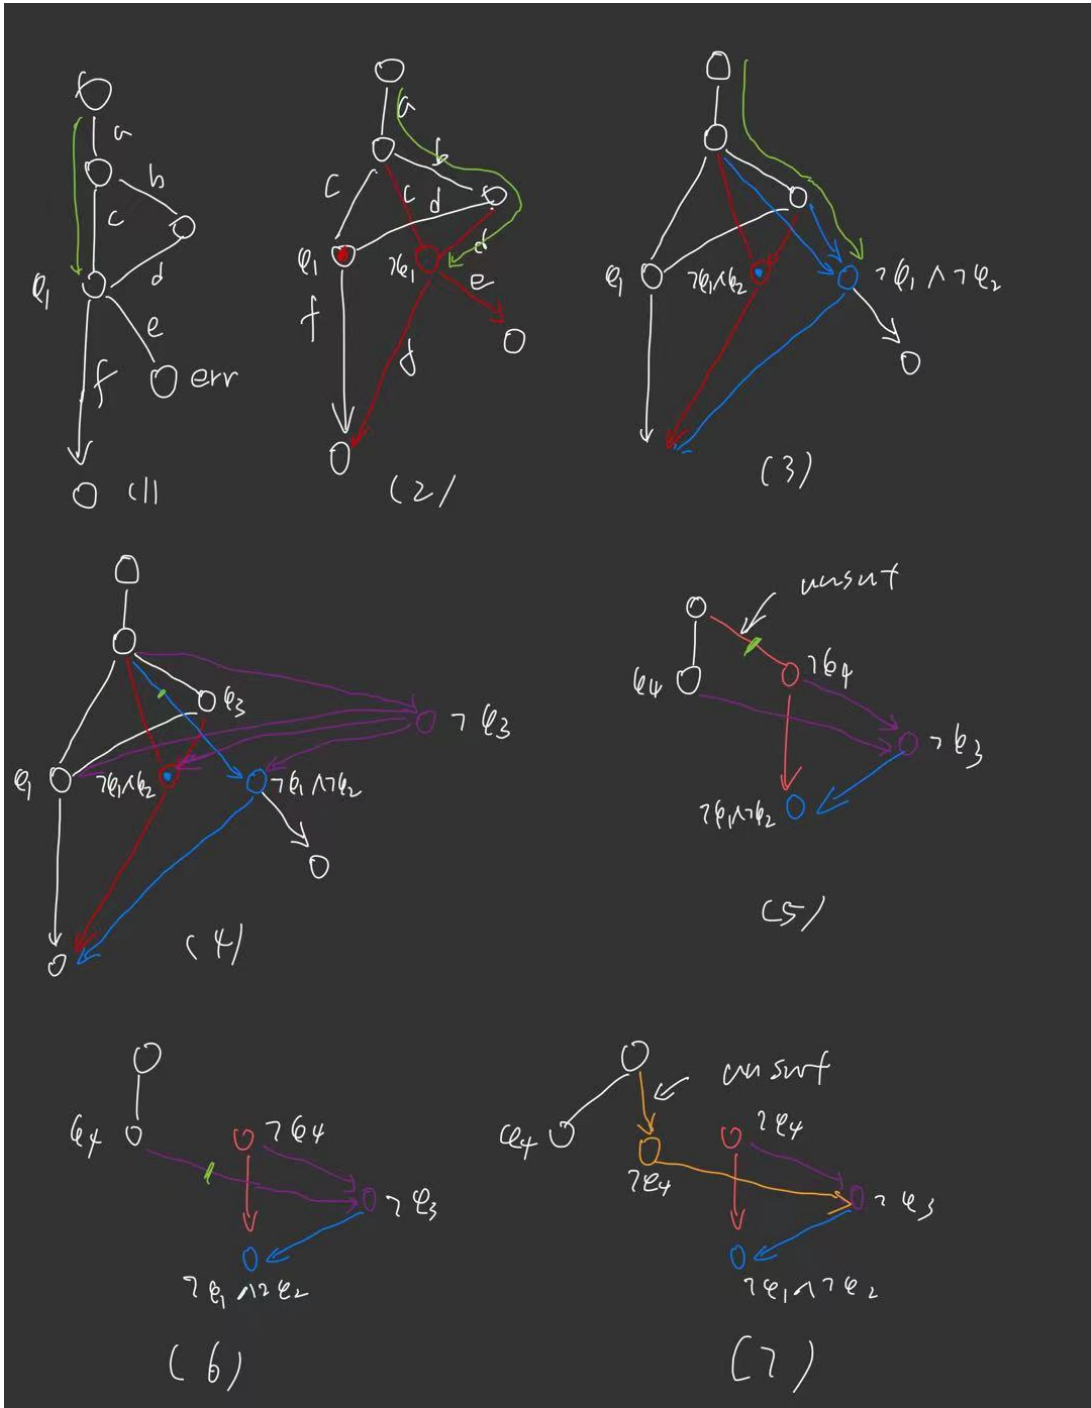 a
b
c
d
φ₁
e
f
err
(1)
a
b
c
c
d
φ₁
¬φ₁
d
e
f
f
(2)
φ₁
¬φ₁∧φ₂
¬φ₁∧¬φ₂
(3)
φ₃
¬φ₃
φ₁
¬φ₁∧φ₂
¬φ₁∧¬φ₂
(4)
unsat
φ₄
¬φ₄
¬φ₃
¬φ₁∧¬φ₂
(5)
φ₄
¬φ₄
¬φ₃
¬φ₁∧¬φ₂
(6)
unsat
φ₄
¬φ₄
¬φ₄
¬φ₃
¬φ₁∧¬φ₂
(7)